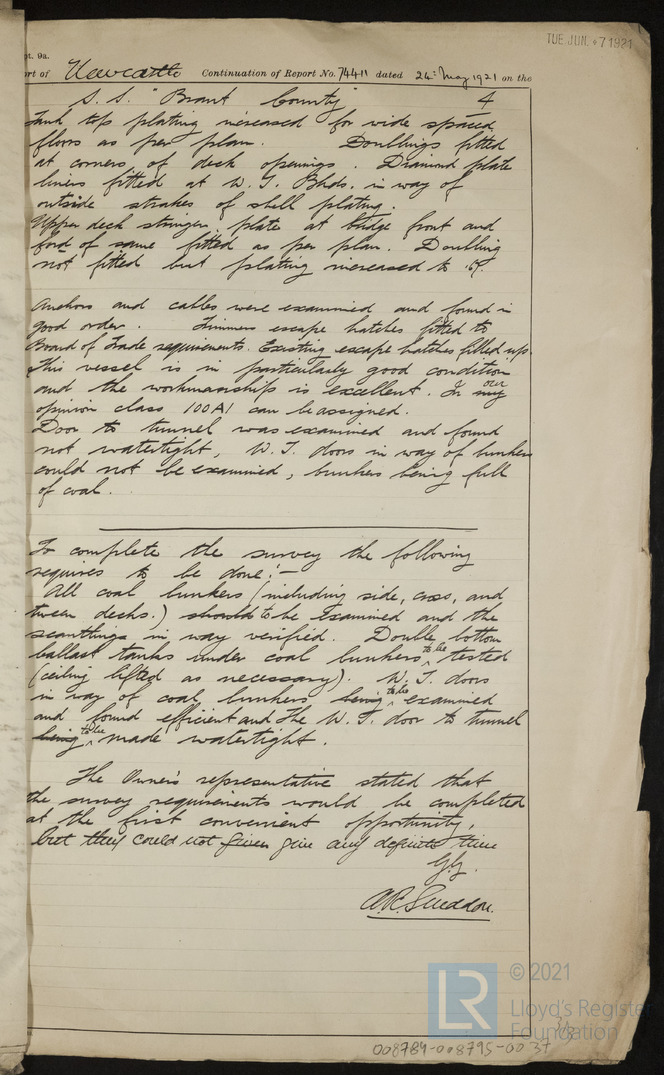 TUE. JUN. 7 1921
pt. 9a.
rt of Newcastle Continuation of Report No. 74411 dated 24th May 1921 on the
S. S. "Brant County" 4
Tank top plating increased for wide spaced
floors as per plan. Doublings fitted
at corners of deck openings. Diamond plate
liners fitted at W. T. Bhds. in way of
outside strakes of shell plating.
Upper deck stringer plate at bridge front and
ford of same fitted as per plan. Doubling
not fitted but plating increased to .67.
Anchors and cables were examined and found in
good order. Trimmers escape hatches fitted to
Board of Trade requirements. Existing escape hatches filled up.
This vessel is in particularly good condition
and the workmanship is excellent. In my our
opinion class 100A1 can be assigned.
Door to tunnel was examined and found
not watertight, W. T. doors in way of bunkers
could not be examined, bunkers being full
of coal.
To complete the survey the following
requires to be done:-
All coal bunkers (including side, cross, and
tween decks.) should to be Examined and the
scantlings in way verified. Double bottom
ballast tanks under coal bunkers to be tested
(ceiling lifted as necessary). W. T. doors
in way of coal bunkers being to be examined
and found efficient and the W. T. door to tunnel
being to be made watertight.
The Owner's representative stated that
the survey requirements would be completed
at the first convenient opportunity,
but they could not given give any definite time
A.R. Sneddon.
LR
© 2021
Lloyd's Register
Foundation
008784-008795-0037